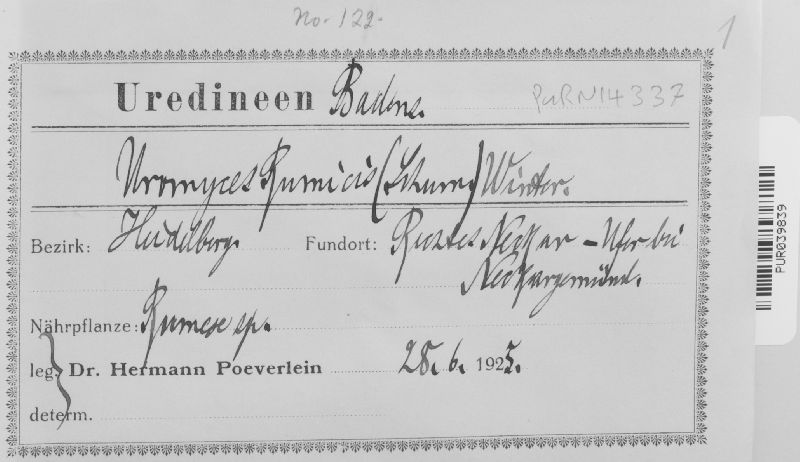 No. 122.
1
Uredineen Badens.
PURN14337
Uromyces Rumicis (Schum.) Winter.
Bezirk: Heidelberg. Fundort: Rechtes Neckar-Ufer bei
Neckargemünd.
Nährpflanze: Rumex sp.
leg. Dr. Hermann Poeverlein 28. 6. 1925.
determ.
PUR039839